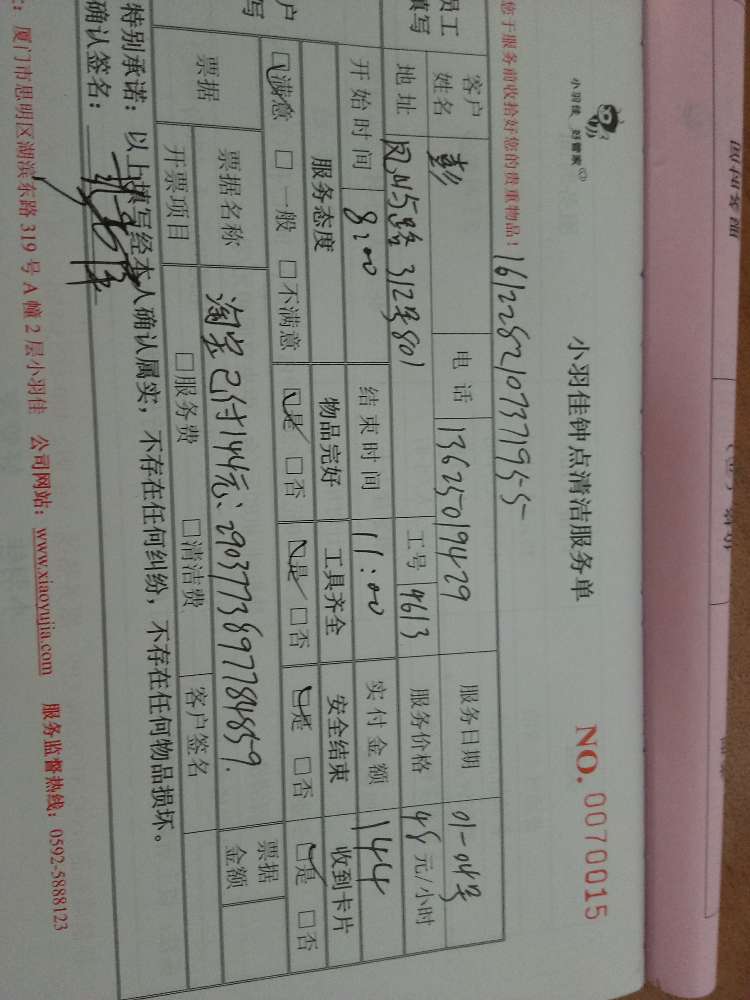 小羽佳 好管家
小羽佳钟点清洁服务单
NO. 0070015
您于服务前收拾好您的贵重物品！
161228210737195-5
员工
填写
客户姓名 彭 电话 13625019429 服务日期 01-04号
地址 凤屿路312号801 工号 9613 服务价格 48元/小时
开始时间 8:00 结束时间 11:00 实付金额 144
户
写
服务态度 物品完好 工具齐全 安全结束 收到卡片
□满意 □一般 □不满意 □是 □否 □是 □否 □是 □否 □是 □否
票据 票据名称 淘宝已付144元、2903773897784859. 票据金额
开票项目 □服务费 □清洁费 客户签名
特别承诺：以上填写经本人确认属实，不存在任何纠纷，不存在任何物品损坏。
确认签名：
：厦门市思明区湖滨东路319号A幢2层小羽佳 公司网站：www.xiaoyujia.com 服务监督热线：0592-5888123